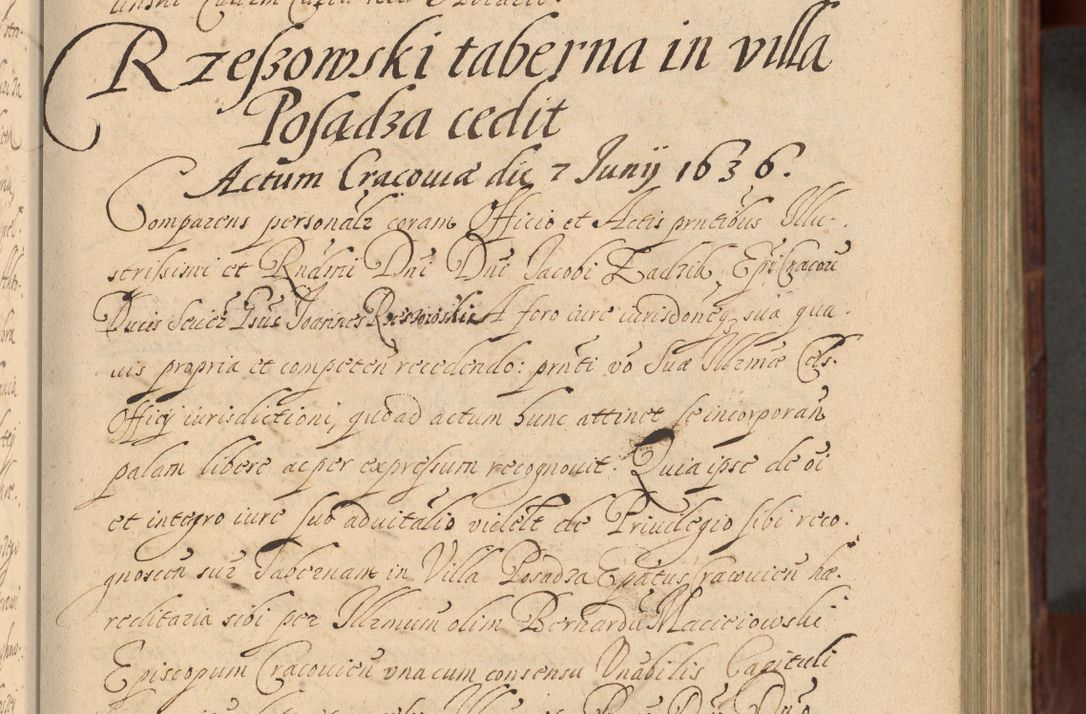 Rzeßowski taberna in villa
Posadza cedit
Actum Cracouiæ die 7 Junij 1636.
Comparens personalr coram Officio et Actis prntibus Illu-
strissimi et Rndsmi Dni Dni Jacobi Zadzik Epi Cracouien
Ducis Seuer Psus Joannes Rzeszowski A foro iure iurisdõneq sua qua-
uis propria et competen recedendo: prnti vo Suæ Illrmæ Cels.
Officij iurisdictioni, quoad actum hunc attinet se incorporan
palam libere ac per expressum recognouit. Quia ipse de oi
et integro iure suo aduitalio videlt de Priuilegio sibi reco-
gnoscen sup Tabernam in Villa Posadza Epatus Cracouien hæ-
reditaria sibi per Illrmum olim Bernardu Macieiowski
Episcopum Cracouien vna cum consensu Vnabilis Capituli